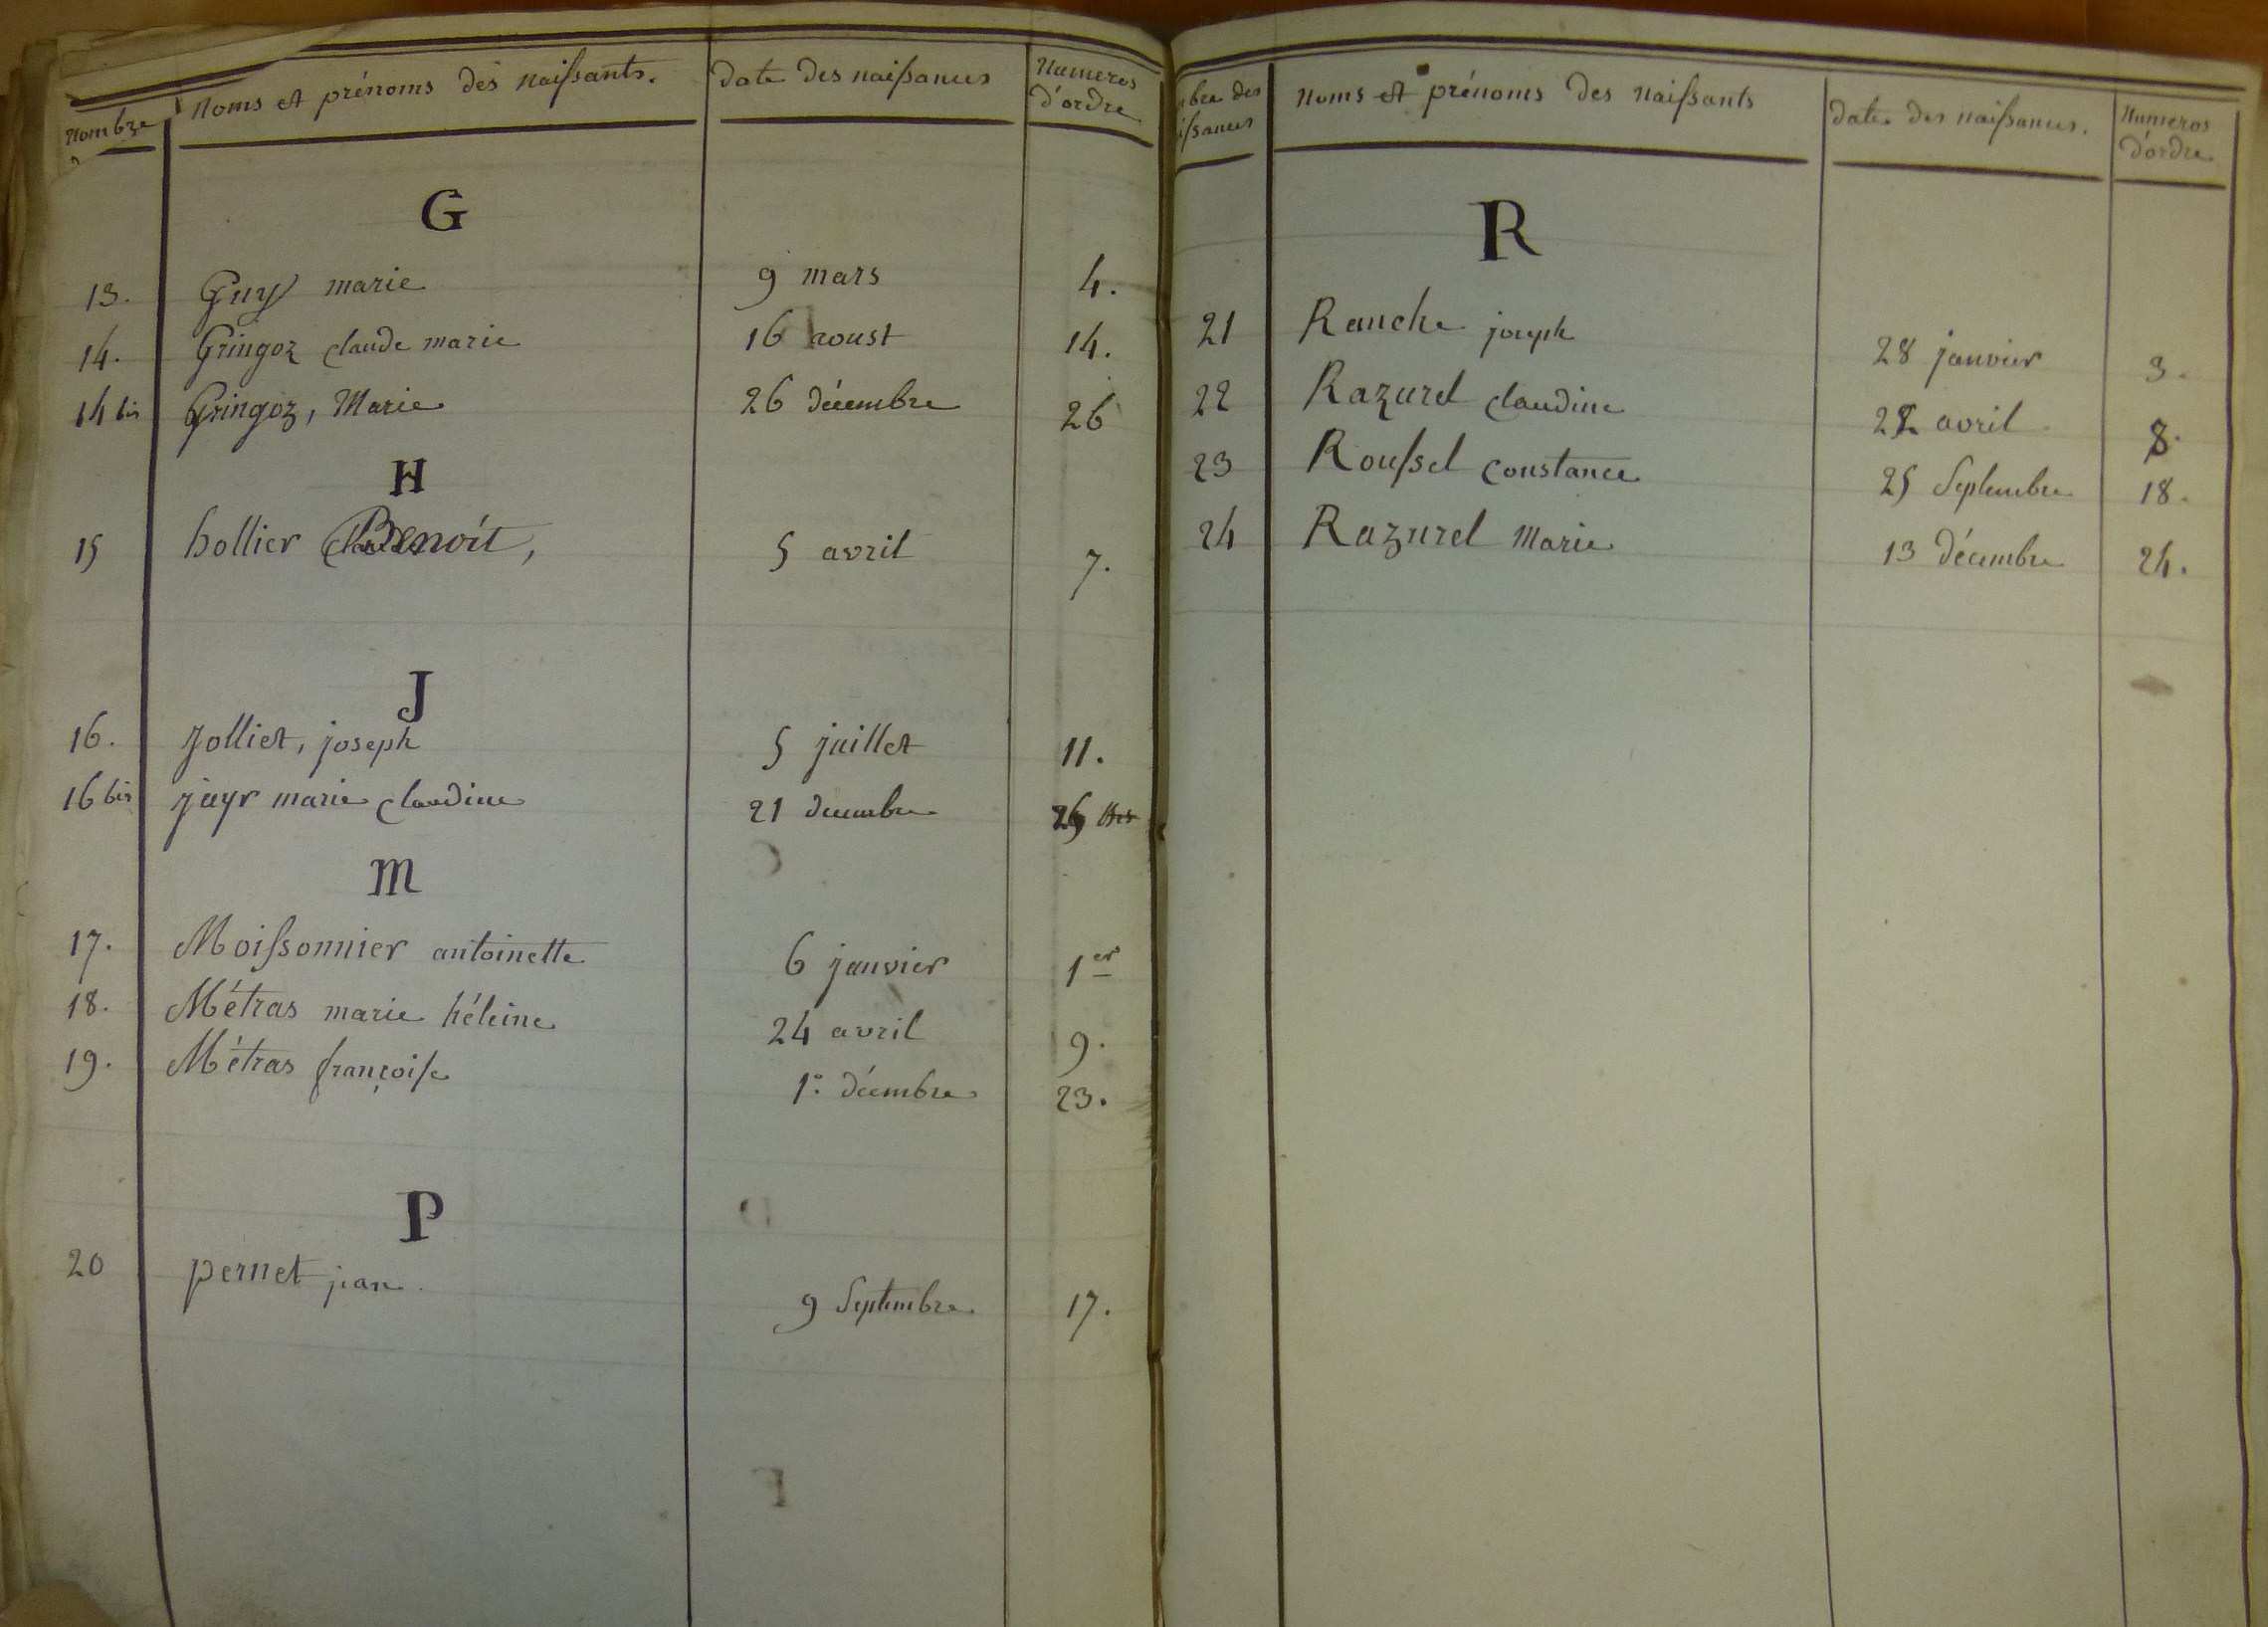 Nombre Noms et prénoms des naissants. Date des naissances Numeros d'ordre
G
13. Guy marie 9 mars 4.
14. Gringoz claude marie 16 aoust 14.
14 bis Gringoz, Marie 26 décembre 26
H
15 hollier Benoit, 5 avril 7.
J
16. Jolliet, joseph 5 juillet 11.
16 bis jayr marie claudine 21 decembre
M
17. Moissonnier antoinette 6 janvier 1er
18. Métras marie héleine 24 avril 9.
19. Métras françoise 1er décembre 23.
P
20 pernet jean. 9 Septembre 17.
bre des issances Noms et prénoms des naissants Date des naissances. Numeros d'ordre
R
21 Ranche joseph 28 janvier 3.
22 Razurel claudine avril 8.
23 Roussel constance 25 Septembre 18.
24 Razurel Marie 13 décembre 24.